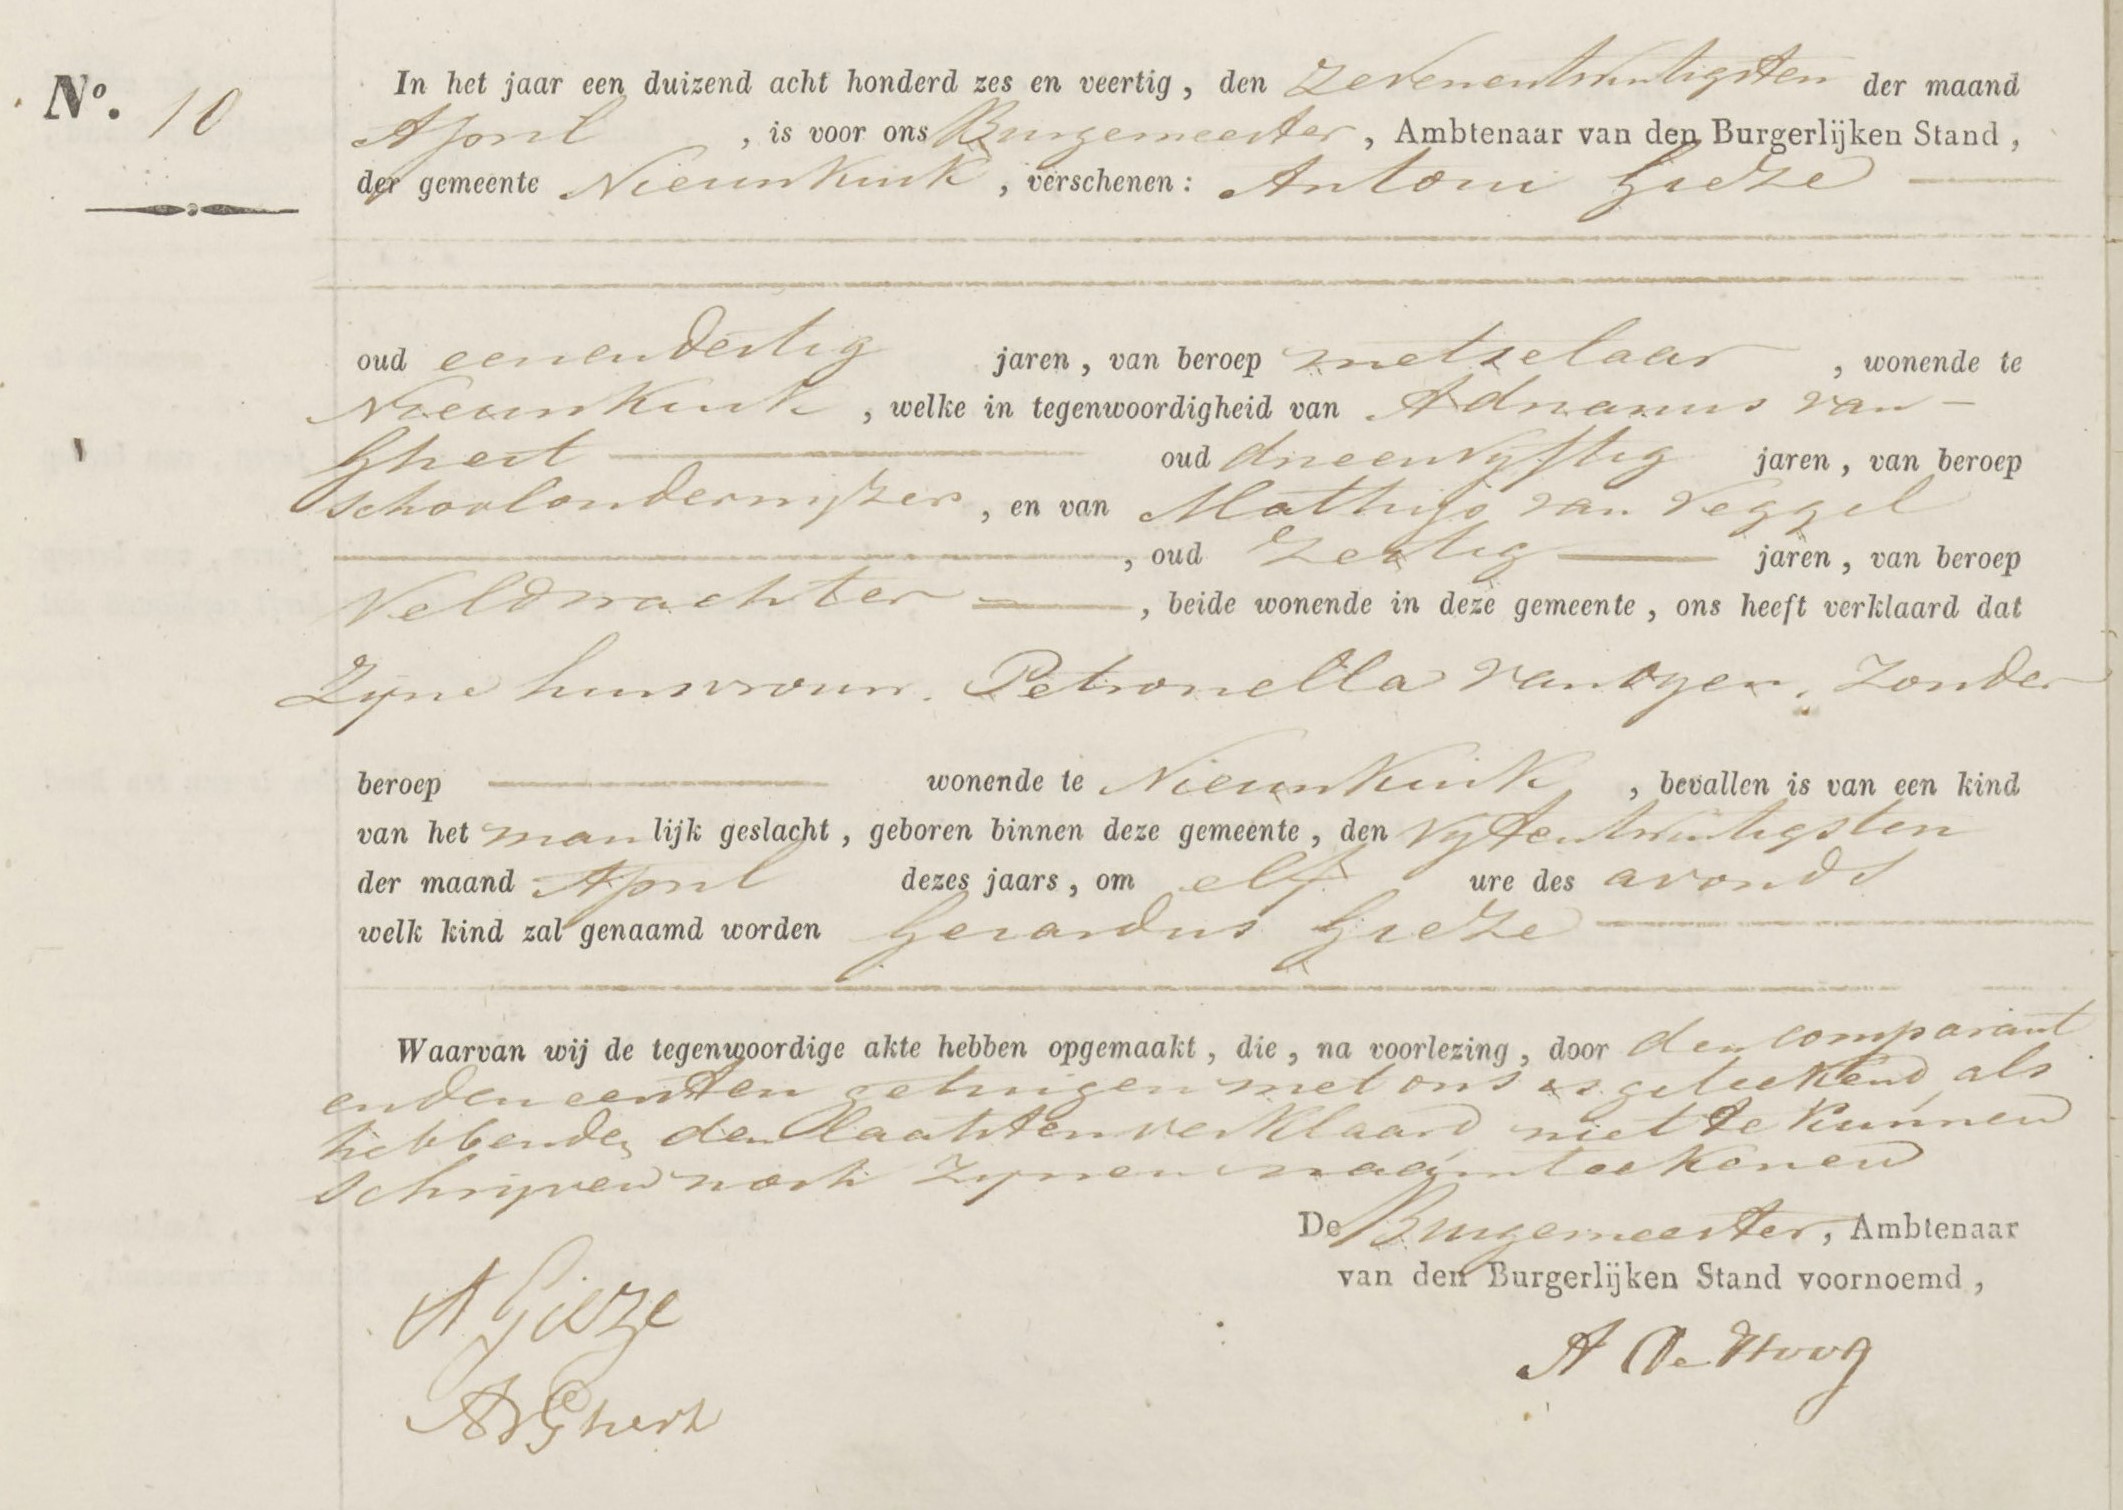 No. 10
In het jaar een duizend acht honderd zes en veertig, den zevenentwintigsten der maand
April, is voor ons Burgemeester, Ambtenaar van den Burgerlijken Stand,
der gemeente Nieuwkuik, verschenen: Antoni Gieze
oud eenendertig jaren, van beroep metzelaar, wonende te
Nieuwkuik, welke in tegenwoordigheid van Adrianus van
Ghert oud drieenvyftig jaren, van beroep
schoolonderwyzer, en van Mathijs van Veggel
, oud zestig jaren, van beroep
Veldwachter, beide wonende in deze gemeente, ons heeft verklaard dat
Zyne huisvrouw. Petronella van Oyen, Zonder
beroep wonende te Nieuwkuik, bevallen is van een kind
van het manlijk geslacht, geboren binnen deze gemeente, den vyfentwintigsten
der maand April dezes jaars, om elf ure des avonds
welk kind zal genaamd worden Gerardus Gieze
Waarvan wij de tegenwoordige akte hebben opgemaakt, die, na voorlezing, door den comparant
en den eersten getuigen met ons is geteekend, als
hebbende den laatsten verklaard niet te kunnen
schryven noch zynen naam teekenen
De Burgemeester, Ambtenaar
van den Burgerlijken Stand voornoemd,
A Gieze
A v Ghert
A De Hoog